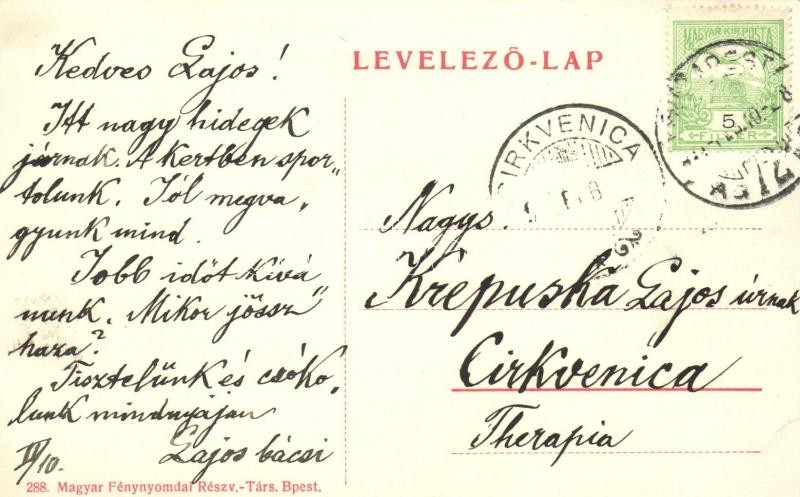 Kedves Lajos!
Itt nagy hidegek
járnak. A kertben spor-
tolunk. Jól megva„
gyunk mind.
Jobb időt kivá„
nunk. Mikor jössz
haza?
Tisztelünk és csóko„
lunk mindnyájan
Lajos bácsi
II/10.
288. Magyar Fénynyomdai Részv.-Társ. Bpest.
LEVELEZŐ-LAP
MAGYAR KIR. POSTA
5
FILLÉR
BUDAPEST
CIRKVENICA
Nagys.
Krepuska Lajos úrnak
Cirkvenica
Therapia